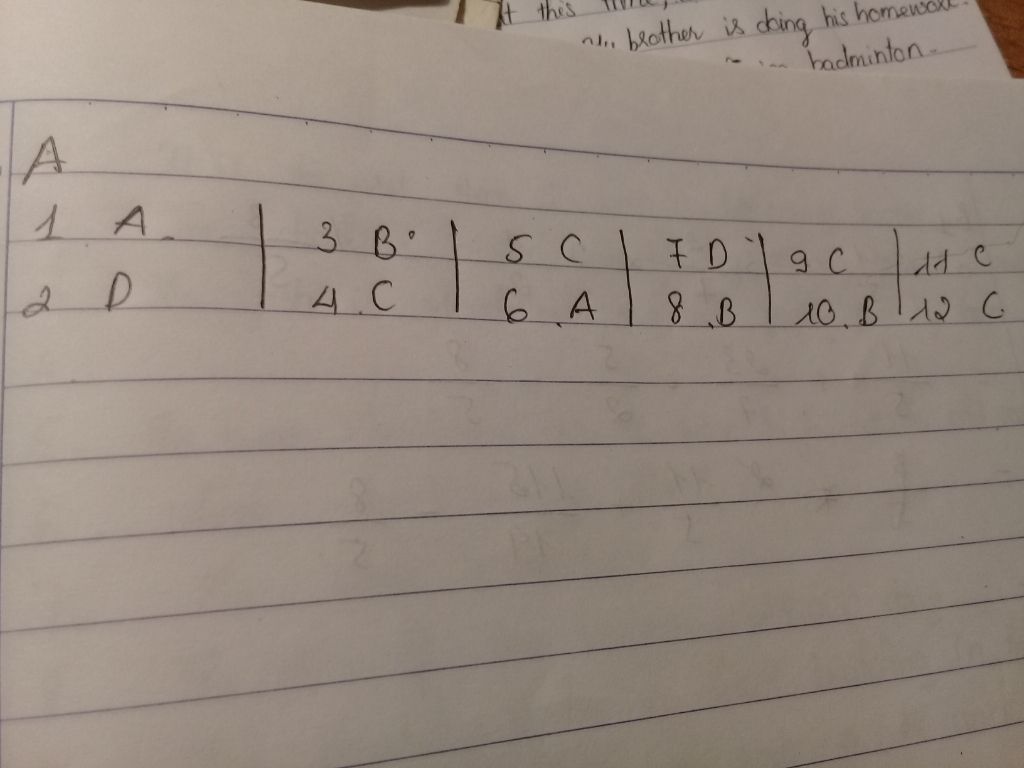 t this
brother is doing his homework.
badminton.
A
1 A. 3 B. 5 C 7 D 9 C 11 C
2 D 4.C 6.A 8.B 10.B 12 C